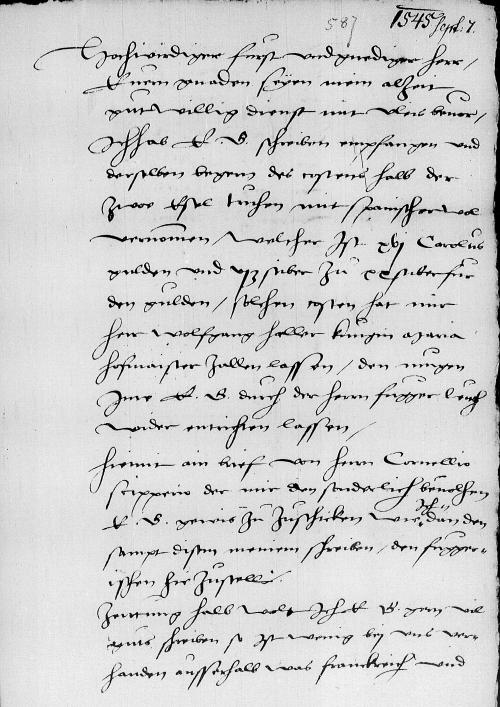 587 1545 Sept. 7.
Hochwirdiger furst und gnediger Herr /
E uern gnaden seyen mein alzeit
gutwillig dienst mit vleis bevor /
Ich hab E. G. schreiben empfangen und
derselben begern des costens halb der
zwoe Esel tuchen mit spanischer wol
vernomen / welcher ist xvj Carolus
gulden und stuber zu xx stuber fur
den gulden / solchen costen hat mir
herr Wolfgang Haller kunigin Maria
hofmaister zallen lassen / den mugen
Ime E. G. durch der herrn fugger leuth
wider entrichten lassen /
hiemit ain brief von herrn Cornellio
scipperio der mir den sonderlich bevolhen
E. G. gewis zu zuschicken wie ich dan den
sampt disem meinem schreiben / den fugger=
ischen hie zustelle.
Zeittung halb wolt Ich E. G. gern vil
guts schreiben so ist wenig bei uns ver=
handen ausserhalb was franckreich und